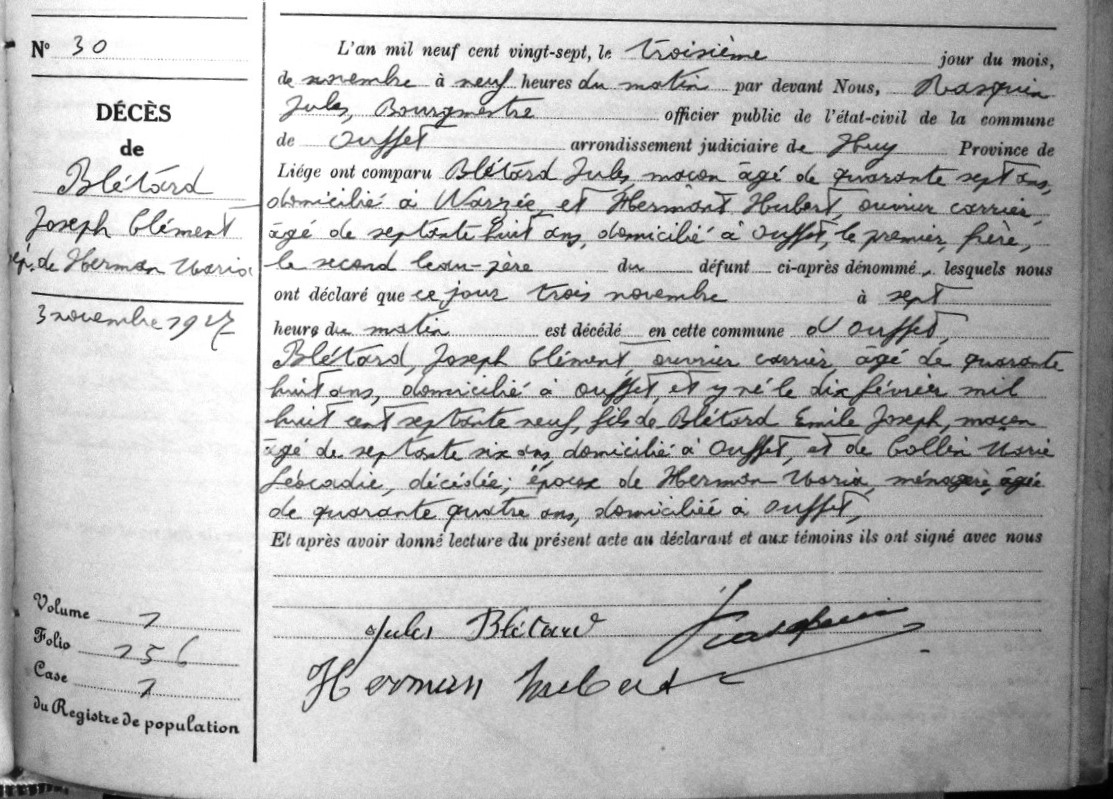 N° 30
DÉCÈS
de
Blétard
Joseph Clément
ép. de Herman Maria
3 novembre 1927
Volume 7
Folio 156
Case 7
du Registre de population
L'an mil neuf cent vingt-sept, le troisième jour du mois,
de novembre à neuf heures du matin par devant Nous, Rasquin
Jules, Bourgmestre officier public de l'état-civil de la commune
de Ouffet arrondissement judiciaire de Huy Province de
Liége ont comparu Blétard Jules, maçon âgé de quarante sept ans,
domicilié à Warzée, et Hermant Hubert, ouvrier carrier
âgé de septante huit ans, domicilié à Ouffet, le premier, frère,
le second beau-père du défunt ci-après dénommé, lesquels nous
ont déclaré que ce jour trois novembre à sept
heures du matin est décédé en cette commune d'Ouffet,
Blétard, Joseph Clément, ouvrier carrier, âgé de quarante
huit ans, domicilié à Ouffet, et y né le dix février mil
huit cent septante neuf, fils de Blétard Emile Joseph, maçon
âgé de septante six ans, domicilié à Ouffet, et de Collin Marie
Léocadie, décédée; époux de Herman Maria, ménagère, âgée
de quarante quatre ans, domiciliée à Ouffet,
Et après avoir donné lecture du présent acte au déclarant et aux témoins ils ont signé avec nous
Jules Blétard JRasquin
Herman Hubert